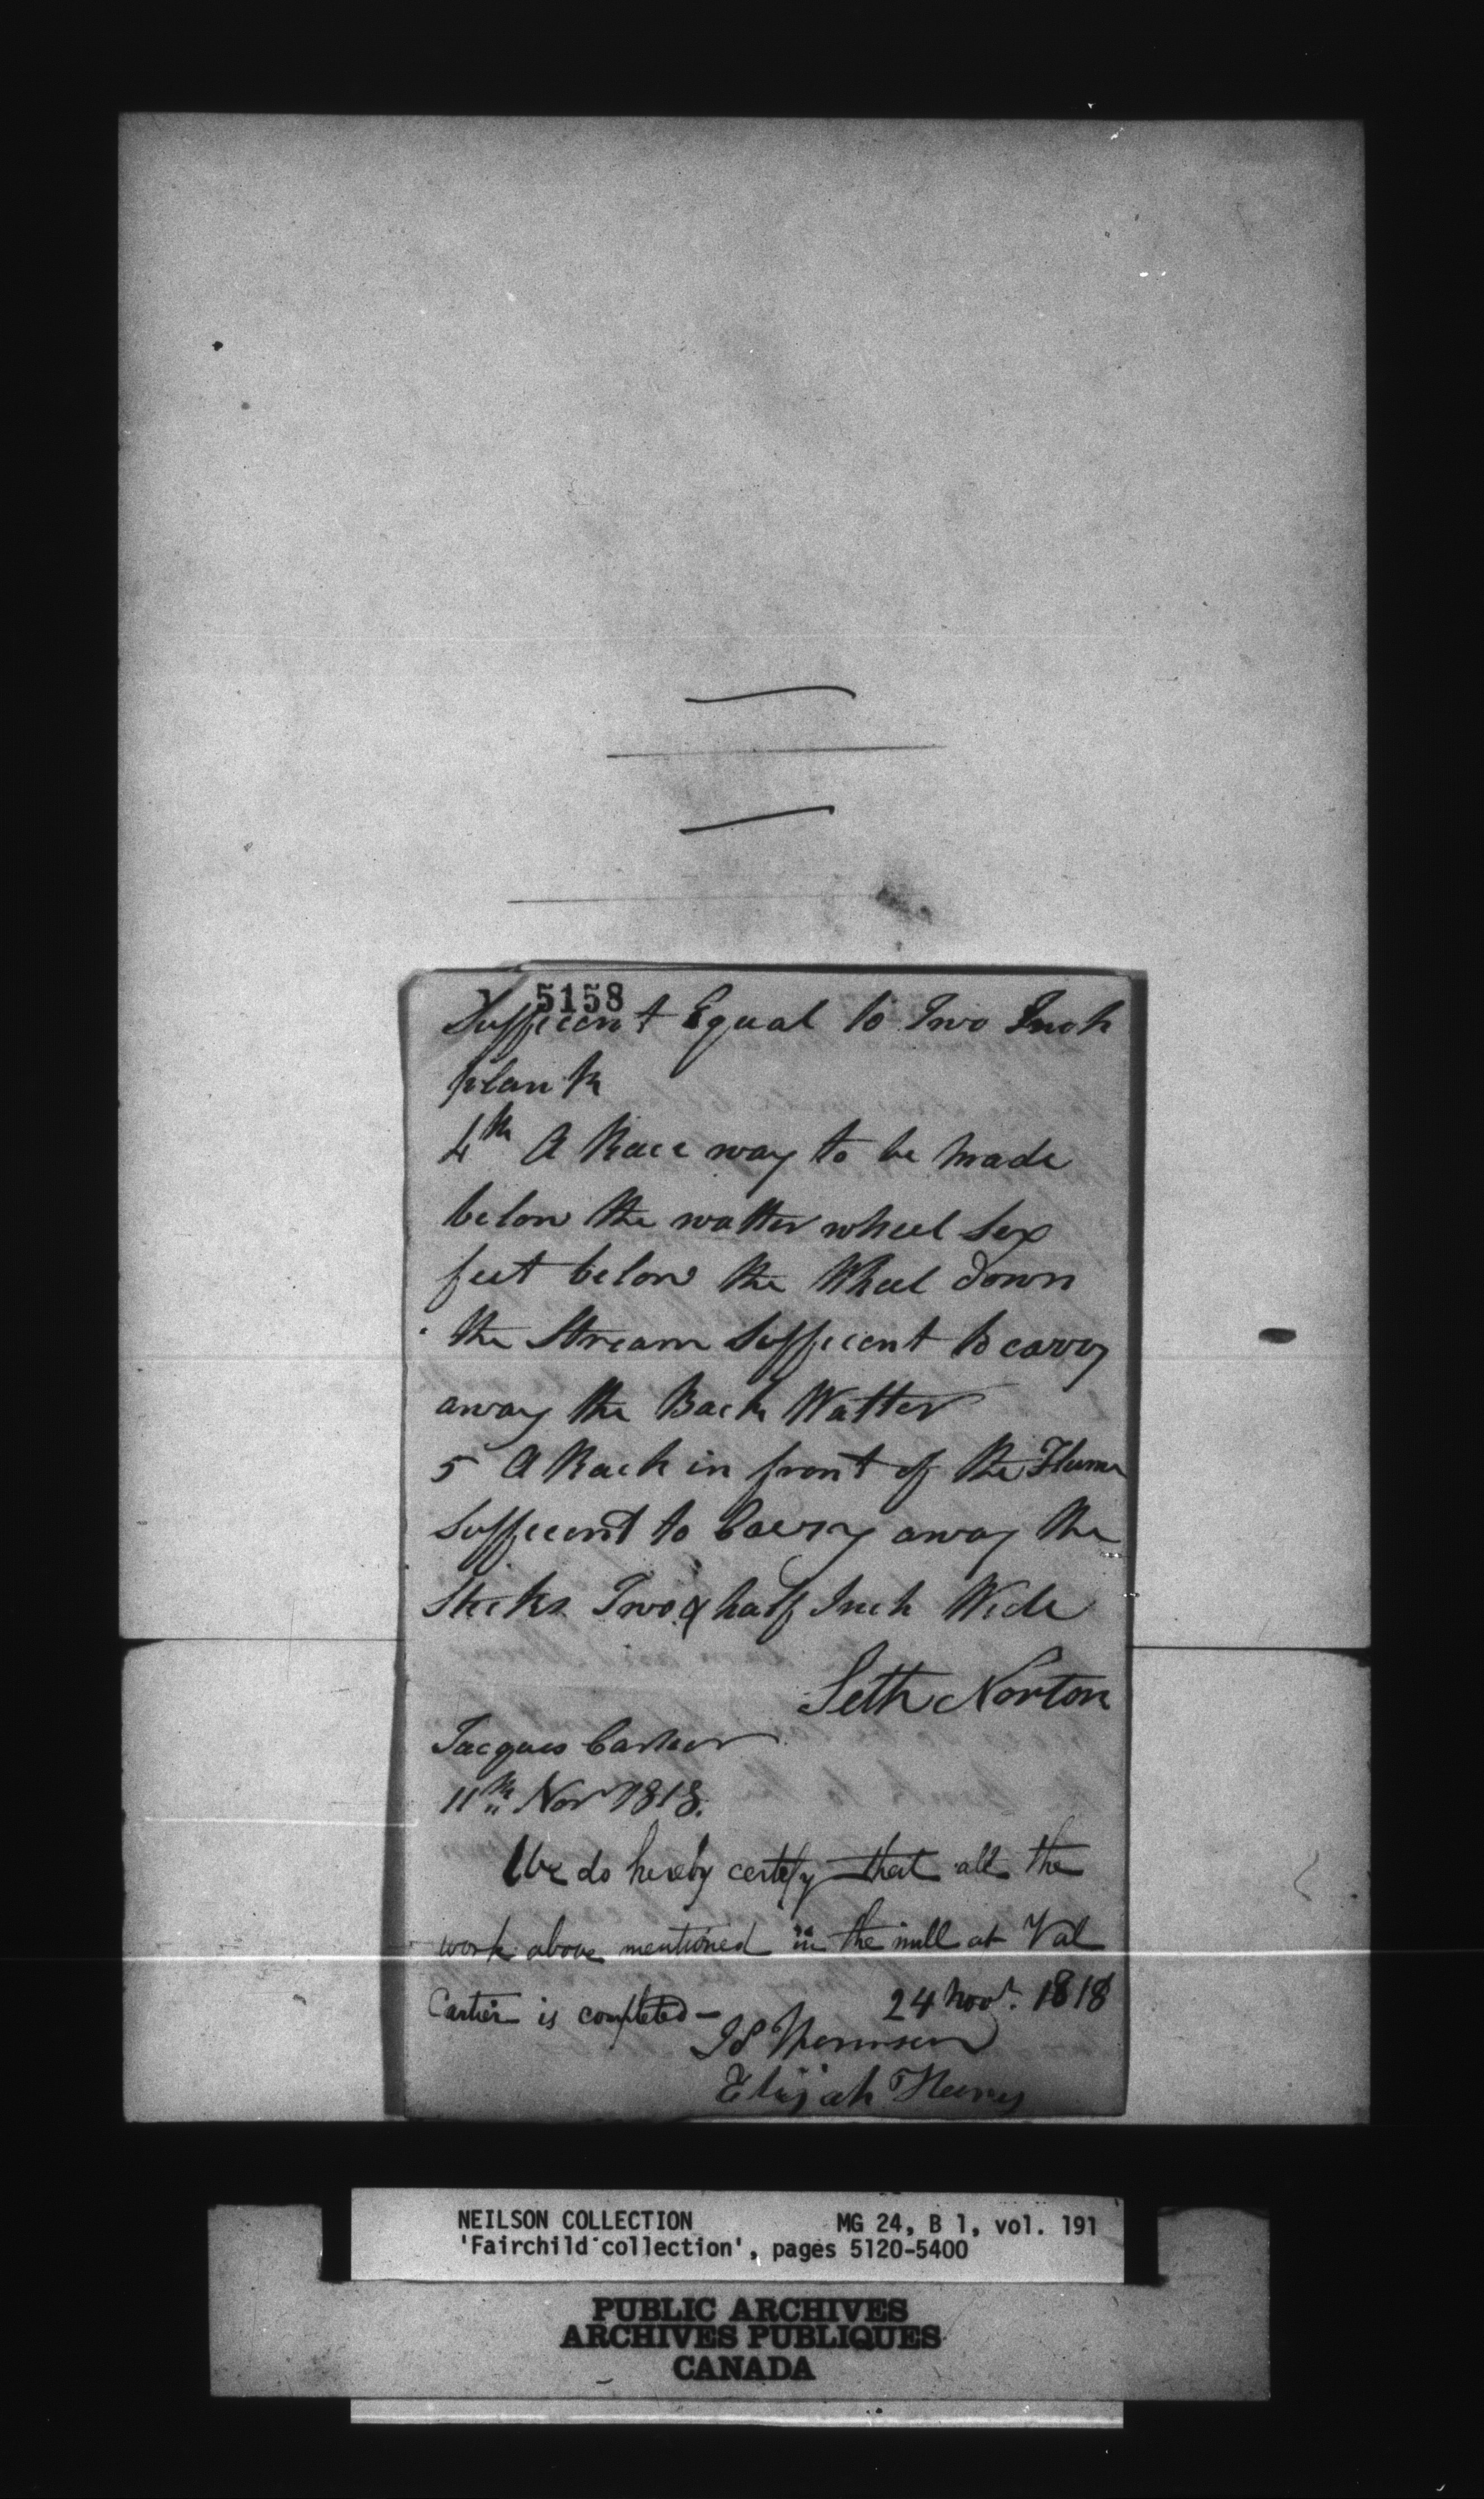 5158
Sufficent Equal to Two Inch
plank
4th A Race way to be made
below the watter wheel Sex
feet below the Wheel down
the Stream Sufficent to carry
away the Back Watter
5 A Rack in front of the Flume
Sufficent to Carry away the
Sticks Two & half Inch Wide
Seth Norton
Jacques Cartier
11th Nov 1818.
We do hereby certify that all the
work above mentioned in the mill at Val
Cartier is completed —
24 Novr. 1818
Elijah
NEILSON COLLECTION MG 24, B 1, vol. 191
'Fairchild collection', pages 5120-5400
PUBLIC ARCHIVES
ARCHIVES PUBLIQUES
CANADA